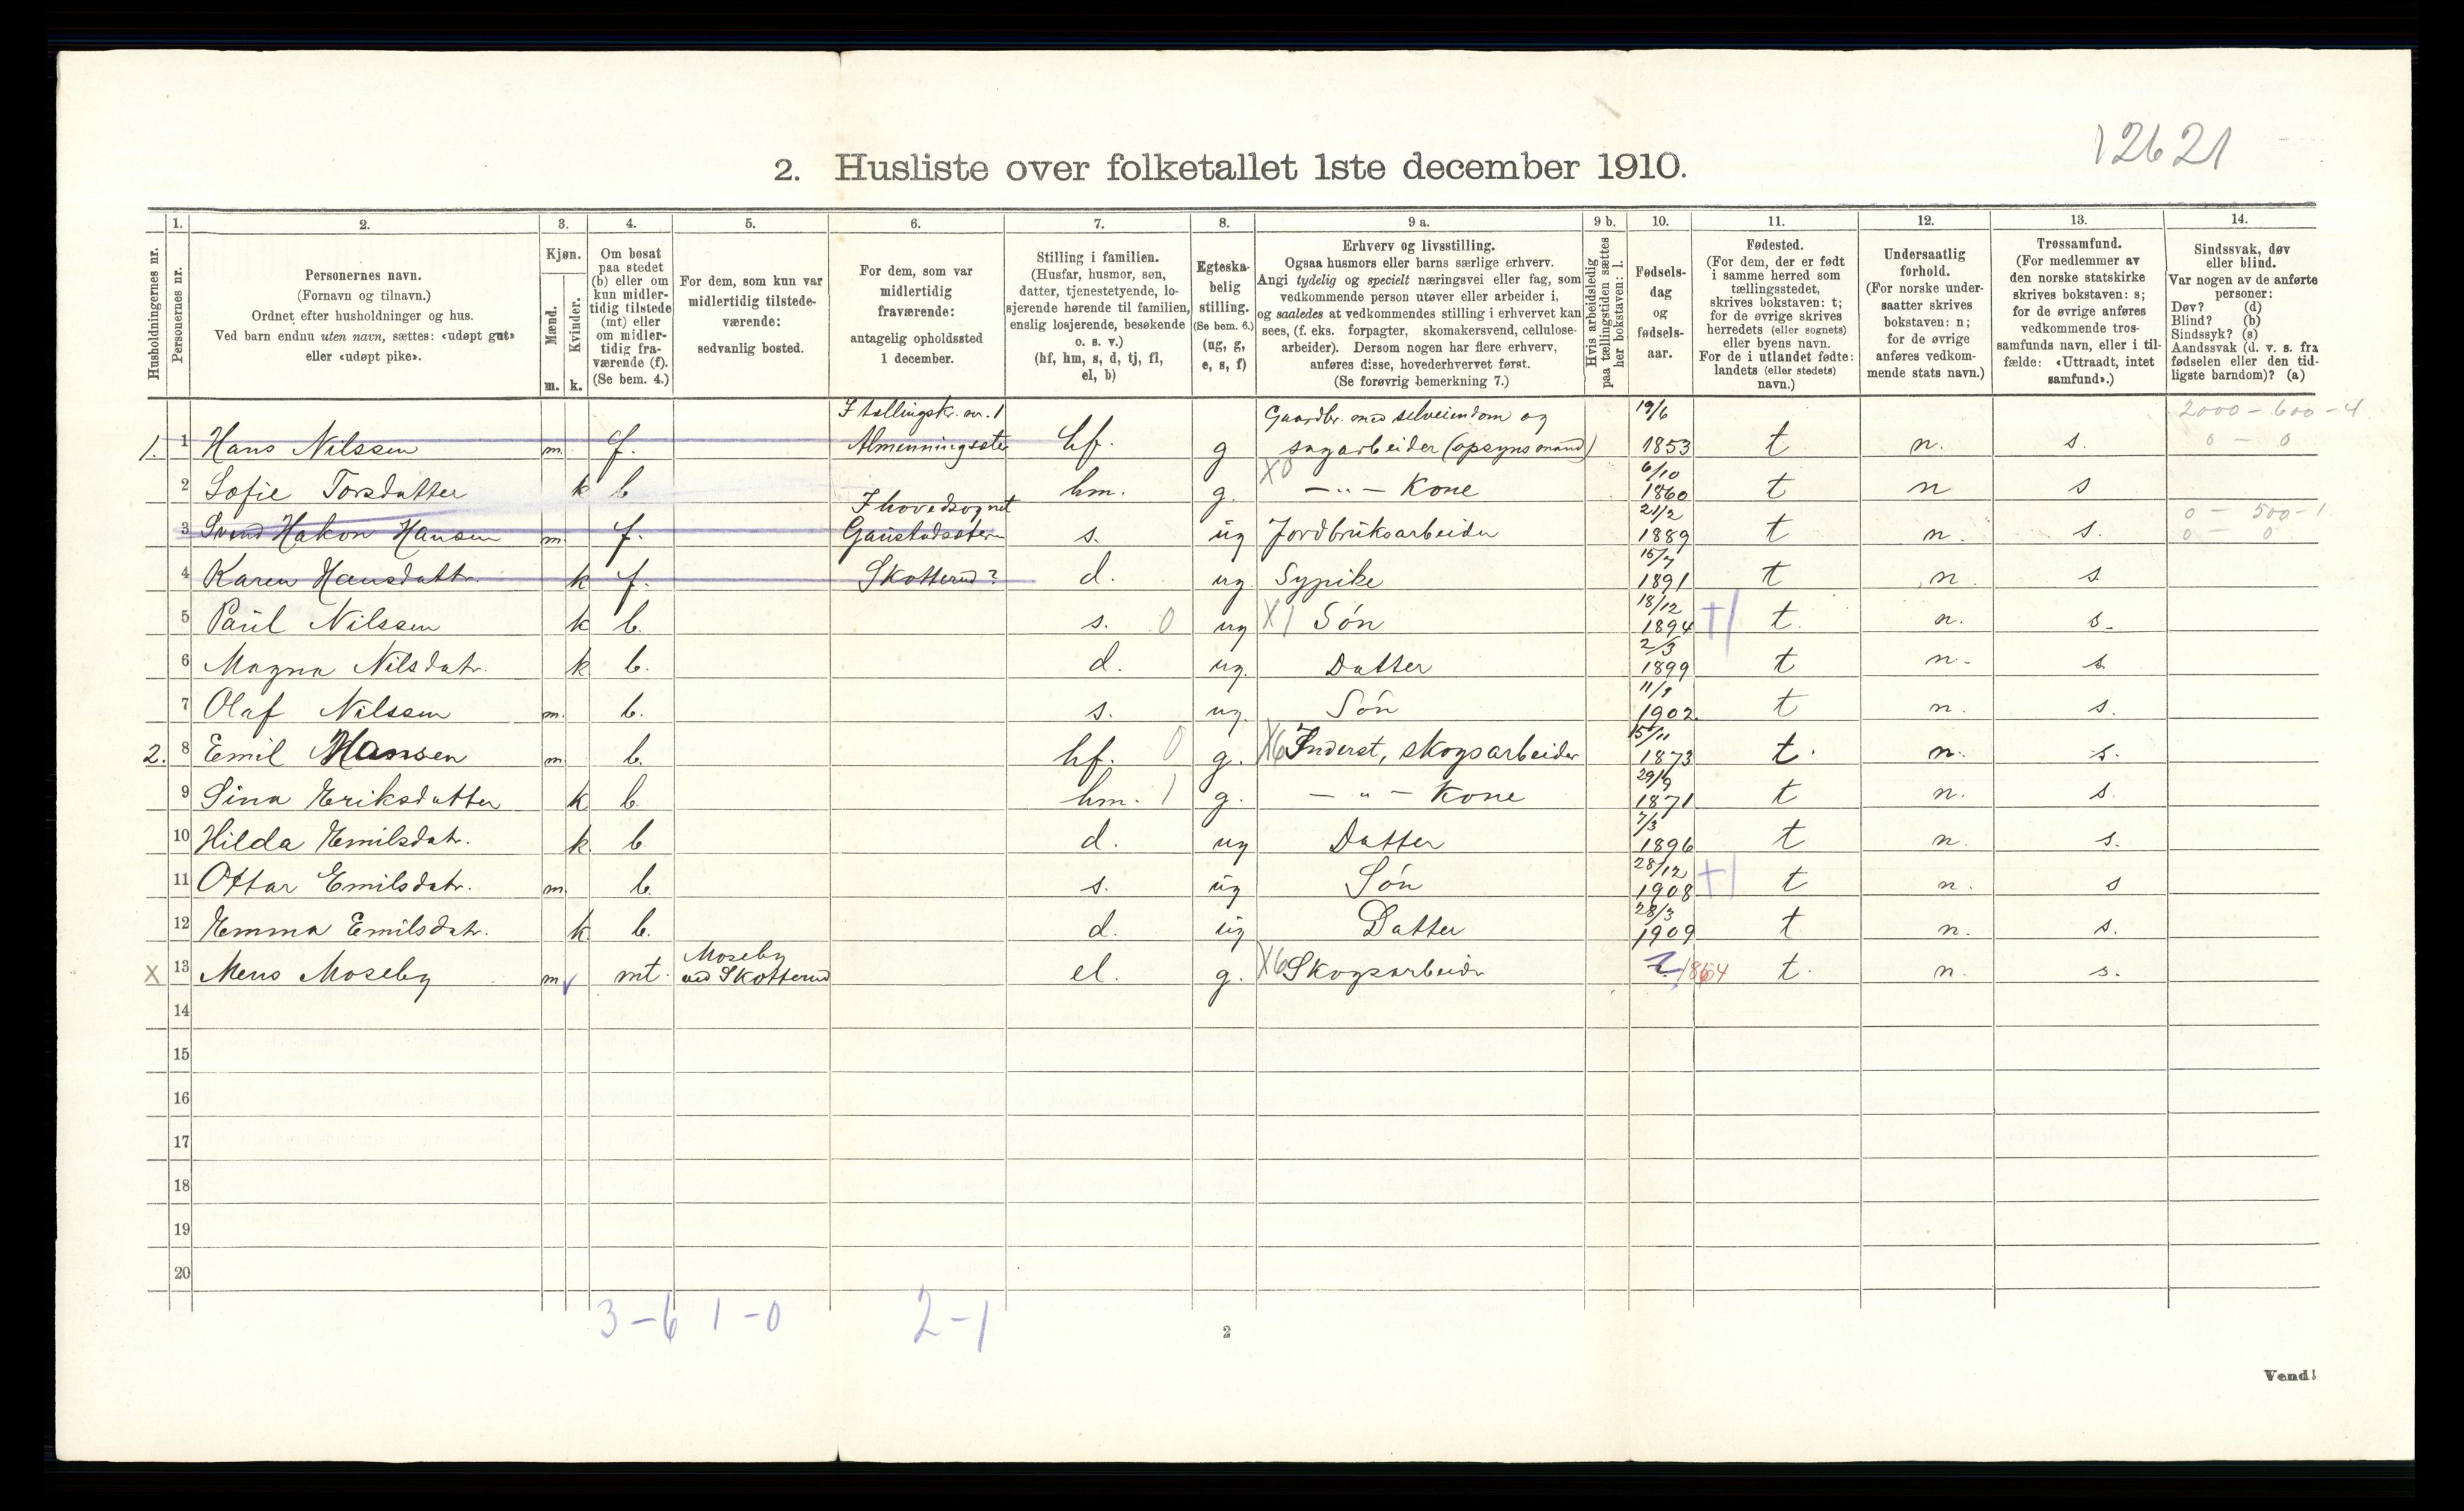 12621
2. Husliste over folketallet 1ste december 1910.
Husholdningernes nr.
1. Personernes nr.
2. Personernes navn. (Fornavn og tilnavn.) Ordnet efter husholdninger og hus. Ved barn endnu uten navn, sættes: «udøpt gut» eller «udøpt pike».
3. Kjøn. Mænd. m. Kvinder. k.
4. Om bosat paa stedet (b) eller om kun midlertidig tilstede (mt) eller om midlertidig fraværende (f). (Se bem. 4.)
5. For dem, som kun var midlertidig tilstedeværende: sedvanlig bosted.
6. For dem, som var midlertidig fraværende: antagelig opholdssted 1 december.
7. Stilling i familien. (Husfar, husmor, søn, datter, tjenestetyende, losjerende hørende til familien, enslig losjerende, besøkende o. s. v.) (hf, hm, s, d, tj, fl, el, b)
8. Egteskabelig stilling. (Se bem. 6.) (ug, g, e, s, f)
9 a. Erhverv og livsstilling. Ogsaa husmors eller barns særlige erhverv. Angi tydelig og specielt næringsvei eller fag, som vedkommende person utøver eller arbeider i, og saaledes at vedkommendes stilling i erhvervet kan sees, (f. eks. forpagter, skomakersvend, cellulosearbeider). Dersom nogen har flere erhverv, anføres disse, hovederhvervet først. (Se forøvrig bemerkning 7.)
9 b. Hvis arbeidsledig paa tællingstiden sættes her bokstaven: l.
10. Fødselsdag og fødselsaar.
11. Fødested. (For dem, der er født i samme herred som tællingsstedet, skrives bokstaven: t; for de øvrige skrives herredets (eller sognets) eller byens navn. For de i utlandet fødte: landets (eller stedets) navn.)
12. Undersaatlig forhold. (For norske undersaatter skrives bokstaven: n; for de øvrige anføres vedkommende stats navn.)
13. Trossamfund. (For medlemmer av den norske statskirke skrives bokstaven: s; for de øvrige anføres vedkommende trossamfunds navn, eller i tilfælde: «Uttraadt, intet samfund».)
14. Sindssvak, døv eller blind. Var nogen av de anførte personer: Døv? (d) Blind? (b) Sindssyk? (s) Aandssvak (d. v. s. fra fødselen eller den tidligste barndom)? (a)
I tællingskr. nr. 1 Gaardbr. med selveiendom og 19/6 2000 - 600 - 4
1. 1 Hans Nilssen m. f. Almenningssæter hf. g sagarbeider (opsynsmand) 1853 t n. s. 0 - 0
2 Sofie Torsdatter k b hm. g. X0 - " - Kone 6/10 1860 t n s
I hovedsognet 0 - 500 - 1
3 Svend Hakon Hansen m. f. s. ug Jordbruksarbeider 21/2 1889 t n. s. 0 - 0
4 Karen Hansdattr. k f. Skotterud? d. ug. Sypike 15/7 1891 t n. s
5 Paul Nilssen k b. s. 0 ug X1 Søn 18/12 1894 t. n. s.
6 Magna Nilsdatr. k b. d. ug. Datter 2/3 1899 t n. s
7 Olaf Nilssen m. b. s. ug. Søn 1902 t n. s.
2. 8 Emil Hansen m b. hf. 0 g. X6 Inderst, skogsarbeider 15/11 1873 t. n. s.
9 Sina Eriksdatter k b. hm. 1 g. - " - Kone 29/9 1871 t n. s.
10 Hilda Emilsdatr. k. b. d. ug Datter 7/3 1896 t n. s.
11 Ottar Emilsdatr. m. b. s. ug Søn 28/12 1908 t n. s
12 Emma Emilsdatr. k b. d. ug Datter 28/3 1909 t n. s.
X 13 Mens Moseby m mt. Moseby ved Skotterud el. g. X6 Skogsarbeidr ? 1864 t. n. s.
14
15
16
17
18
19
20
3 - 6 1 - 0 2 - 1
2
Vend!